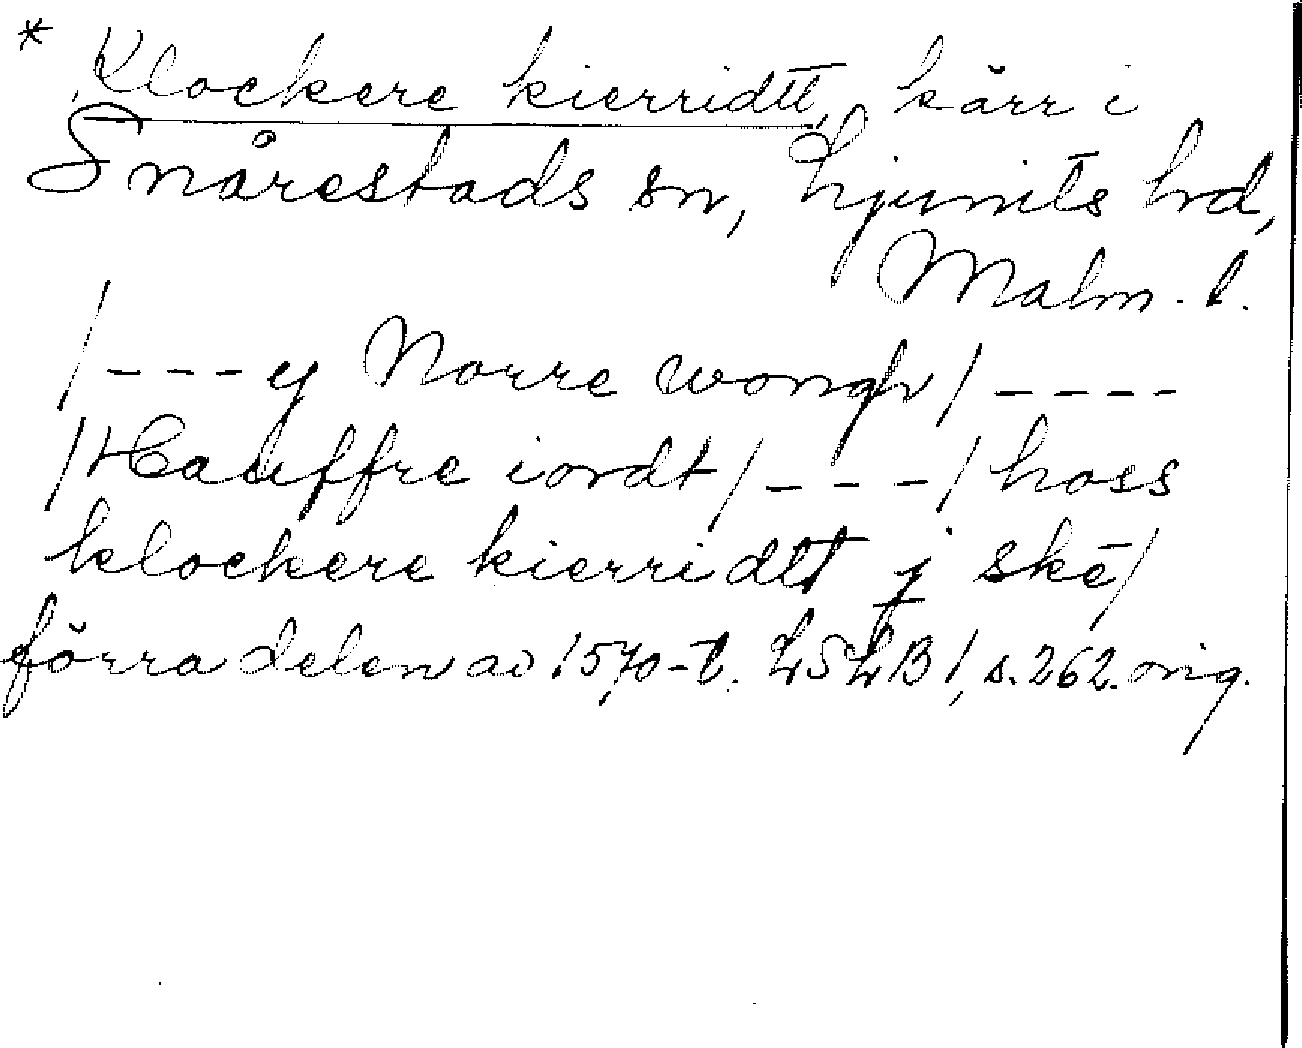 * Klockere kierridtt, kärr i
Snårestads sn, Ljunits hd,
Malm. l.
/---y Norre wongh/----
/Hauffre iordt/---/hoss
klockere kierridtt j ske/
förra delen av 1570-t. LSLB 1, s. 262. orig.